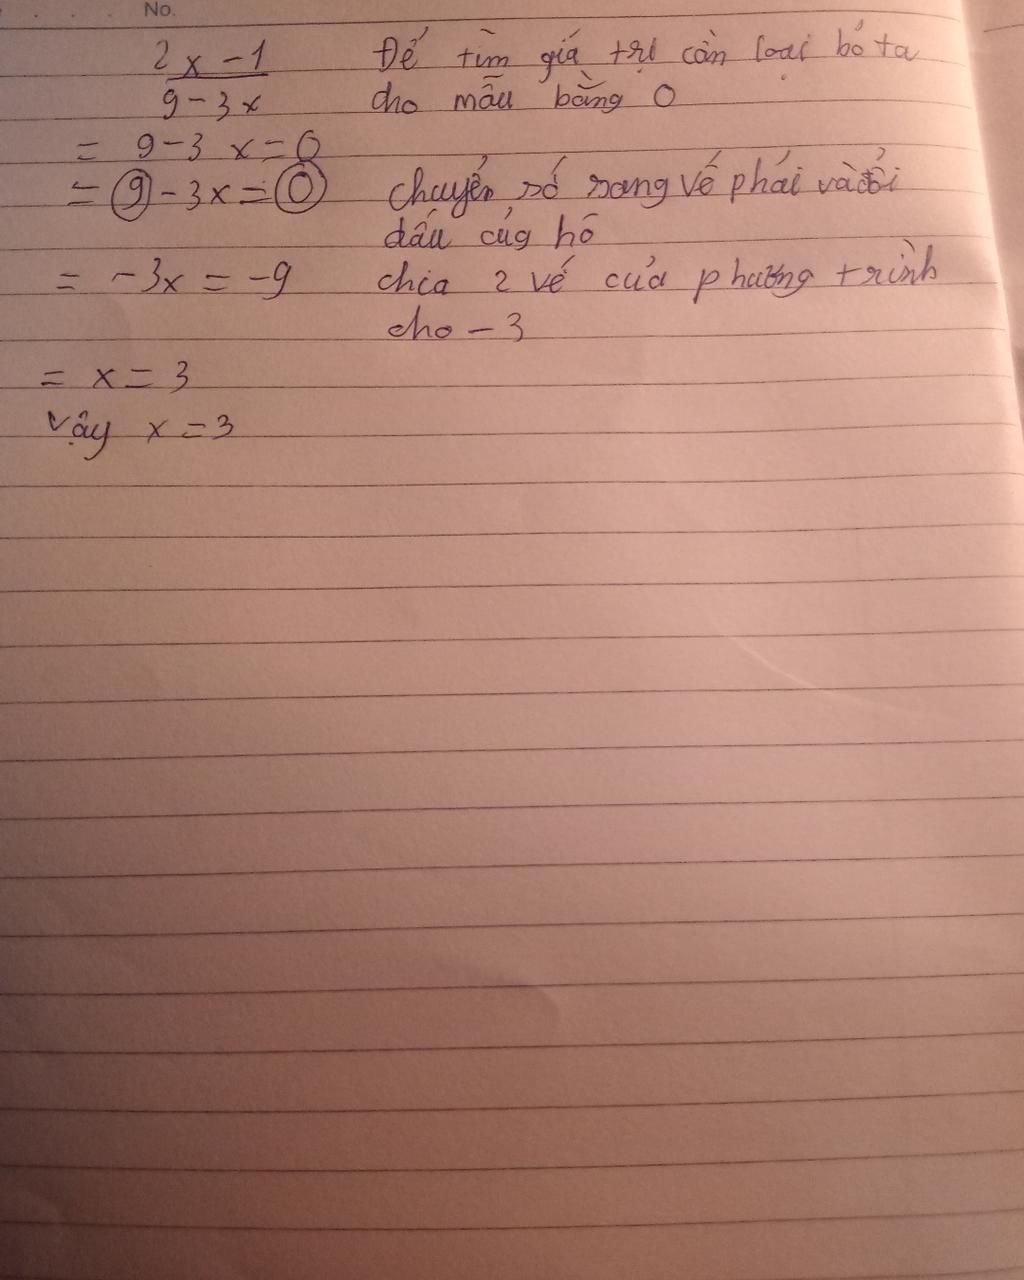 No.
2x - 1 Để tìm giá trị cần loại bỏ ta
9 - 3x cho mẫu bằng 0
= 9 - 3x = 0
= 9 - 3x = 0 chuyển số sang vế phải và đổi
dấu củg hô
= -3x = -9 chia 2 vế của phương trình
cho -3
= x = 3
Vậy x = 3